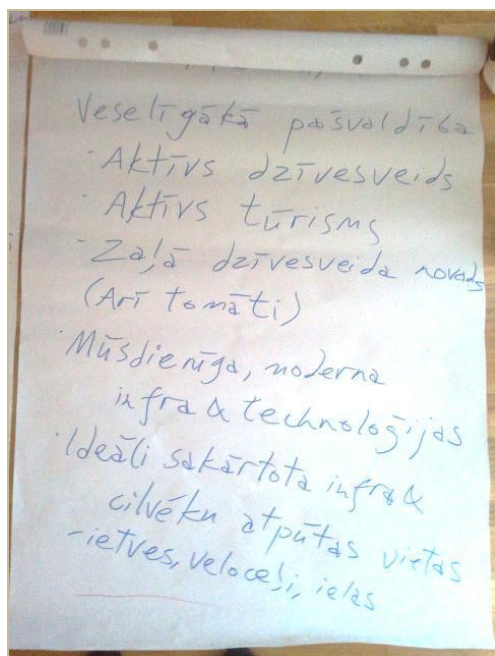 Veselīgākā pašvaldība
- Aktīvs dzīvesveids
- Aktīvs tūrisms
- Zaļā dzīvesveida novads
(Arī tomāti)
· Mūsdienīga, moderna
infra & technoloģijas
· Ideāli sakārtota infra &
cilvēku atpūtas vietas
- ietves, veloceļi, ielas